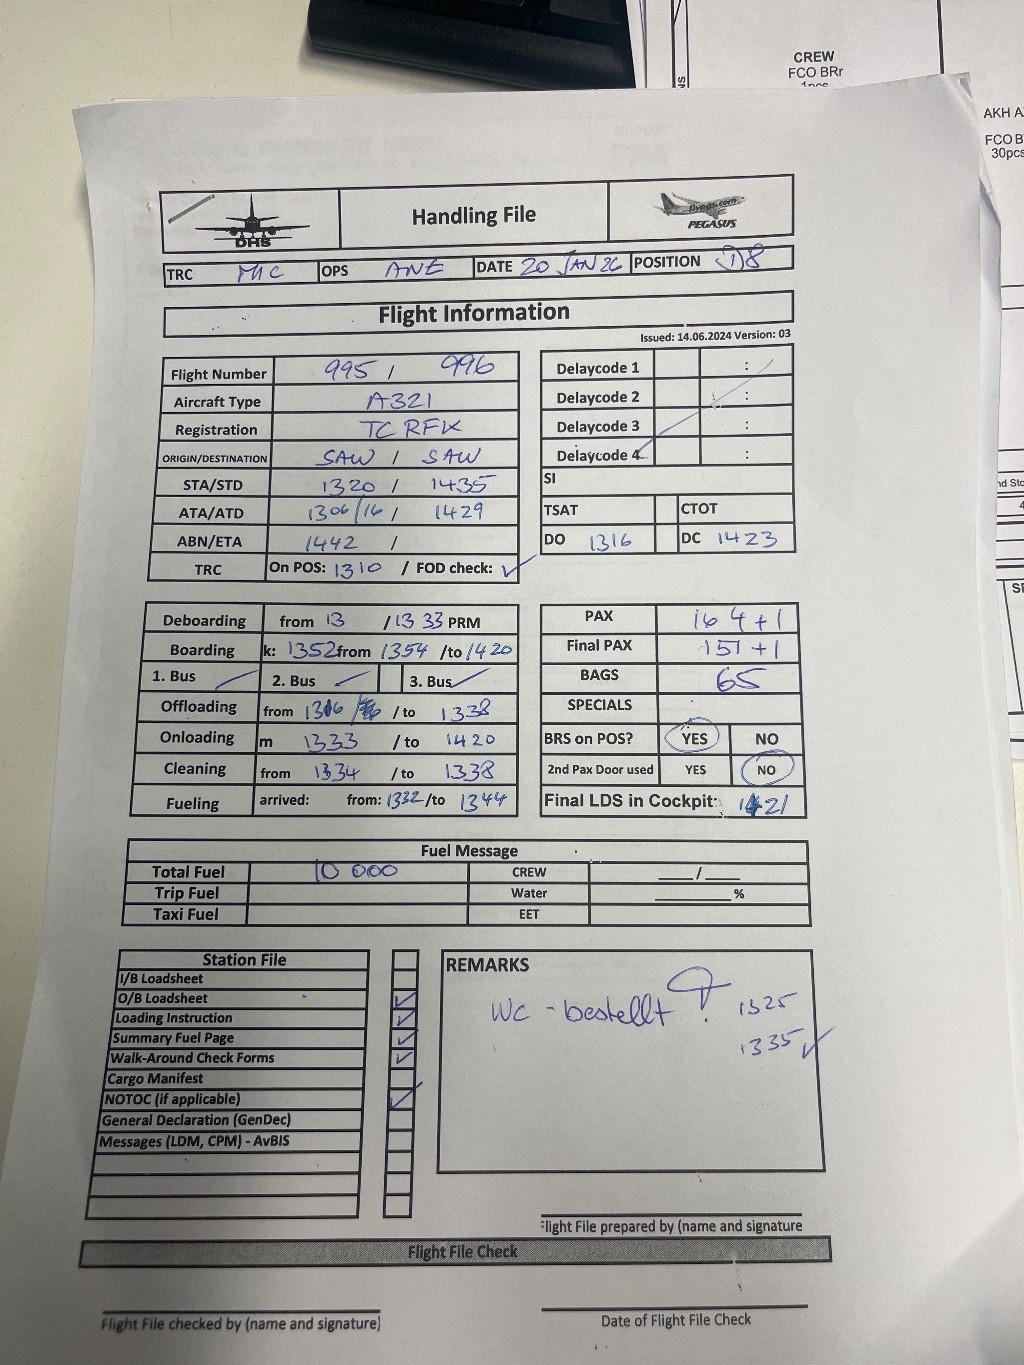 CREW
FCO BRr
AKH A
FCO B
30pcs
DHS
Handling File
flypgs.com
PEGASUS
TRC MIC OPS ANE DATE 20 JAN 26 POSITION 18
Flight Information
Issued: 14.06.2024 Version: 03
Flight Number 995 / 996
Aircraft Type A321
Registration TC RFK
ORIGIN/DESTINATION SAW / SAW
STA/STD 1320 / 1435
ATA/ATD 1306/16 / 1429
ABN/ETA 1442 /
TRC On POS: 1310 / FOD check: ✓
Delaycode 1 :
Delaycode 2 :
Delaycode 3 :
Delaycode 4 :
SI
TSAT CTOT
DO 1316 DC 1423
Deboarding from 13 / 1333 PRM
Boarding k: 1352 from 1354 /to 1420
1. Bus 2. Bus 3. Bus
Offloading from 1316 / to 1338
Onloading m 1333 / to 1420
Cleaning from 1334 / to 1338
Fueling arrived: from: 1332 /to 1344
PAX 164+1
Final PAX 151+1
BAGS 65
SPECIALS
BRS on POS? YES NO
2nd Pax Door used YES NO
Final LDS in Cockpit: 1421
Fuel Message
Total Fuel 10 000 CREW ___/___
Trip Fuel Water ________%
Taxi Fuel EET
Station File
I/B Loadsheet
O/B Loadsheet ✓
Loading Instruction ✓
Summary Fuel Page ✓
Walk-Around Check Forms ✓
Cargo Manifest
NOTOC (if applicable) ✓
General Declaration (GenDec)
Messages (LDM, CPM) - AvBIS
REMARKS
WC - bestellt ! 1325
1335 ✓
Flight File prepared by (name and signature
Flight File Check
Flight File checked by (name and signature)
Date of Flight File Check